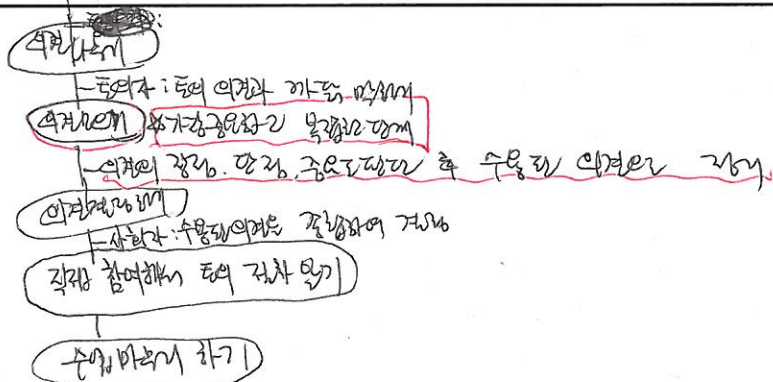 의견나누기
-토의자: 토의 의견과 까닭 말하기
의견모으기 *가장중요하고 복잡한 단계
-의견의 장점, 단점, 중요도판단 후 수용된 의견으로 정리
의견결정하기
-사회자: 수용된의견을 종합하여 결정
직접 참여해서 토의 절차 알기
수업마무리 하기